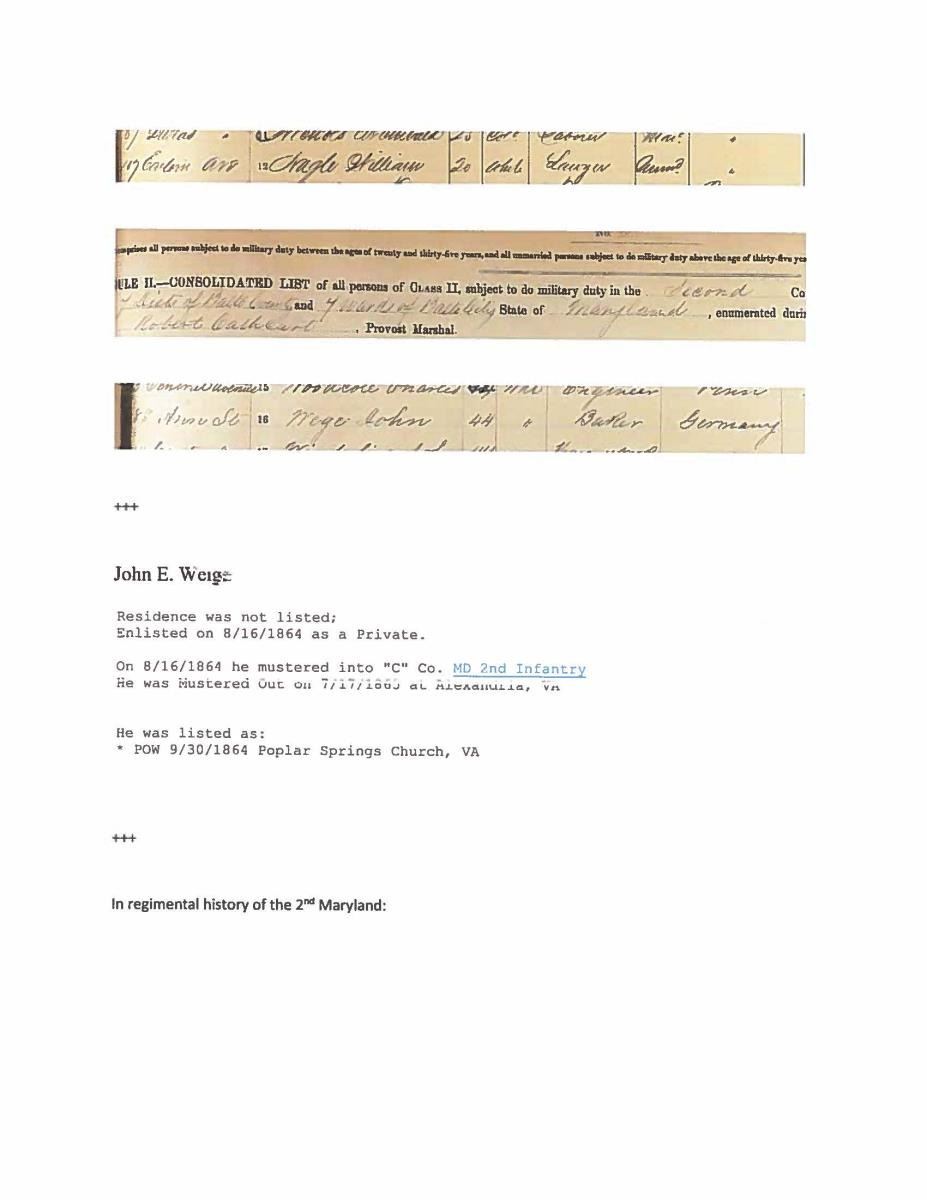 Laborer
Ave 12 Nagle William 20 White
comprises all persons subject to do military duty between the ages of twenty and thirty-five years, and all unmarried persons subject to do military duty above the age of thirty-five
ULE II.—CONSOLIDATED LIST of all persons of CLASS II, subject to do military duty in the Second Co
and 7 Wards of State of Maryland , enumerated durin
Robert Cathcart , Provost Marshal.
15 Charles Engineer Penn
Ann St 16 Wege John 44 " Baker Germany
+++
John E.
Residence was not listed;
Enlisted on 8/16/1864 as a Private.
On 8/16/1864 he mustered into "C" Co. MD 2nd Infantry
He was Mustered Out on 7/17/1865 at Alexandria, VA
He was listed as:
* POW 9/30/1864 Poplar Springs Church, VA
+++
In regimental history of the 2nd Maryland: